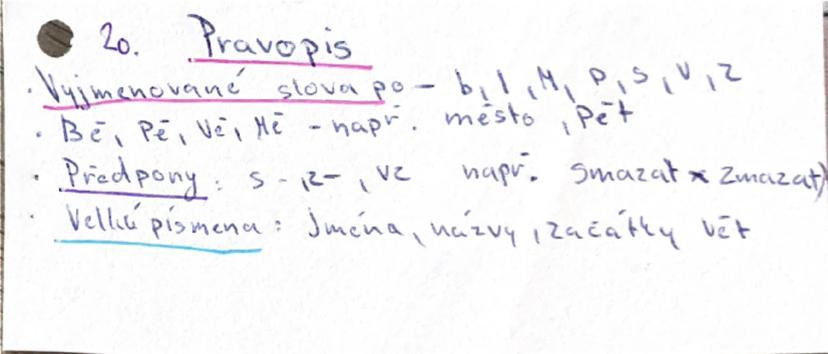 20. Pravopis
· Vyjmenované slova po - b, l, M, p, s, v, z
· Bě, Pě, Vě, Mě - např. město, pět
· Předpony: s-, z-, vz např. smazat x zmazat)
· Velká písmena: Jména, názvy, začátky vět